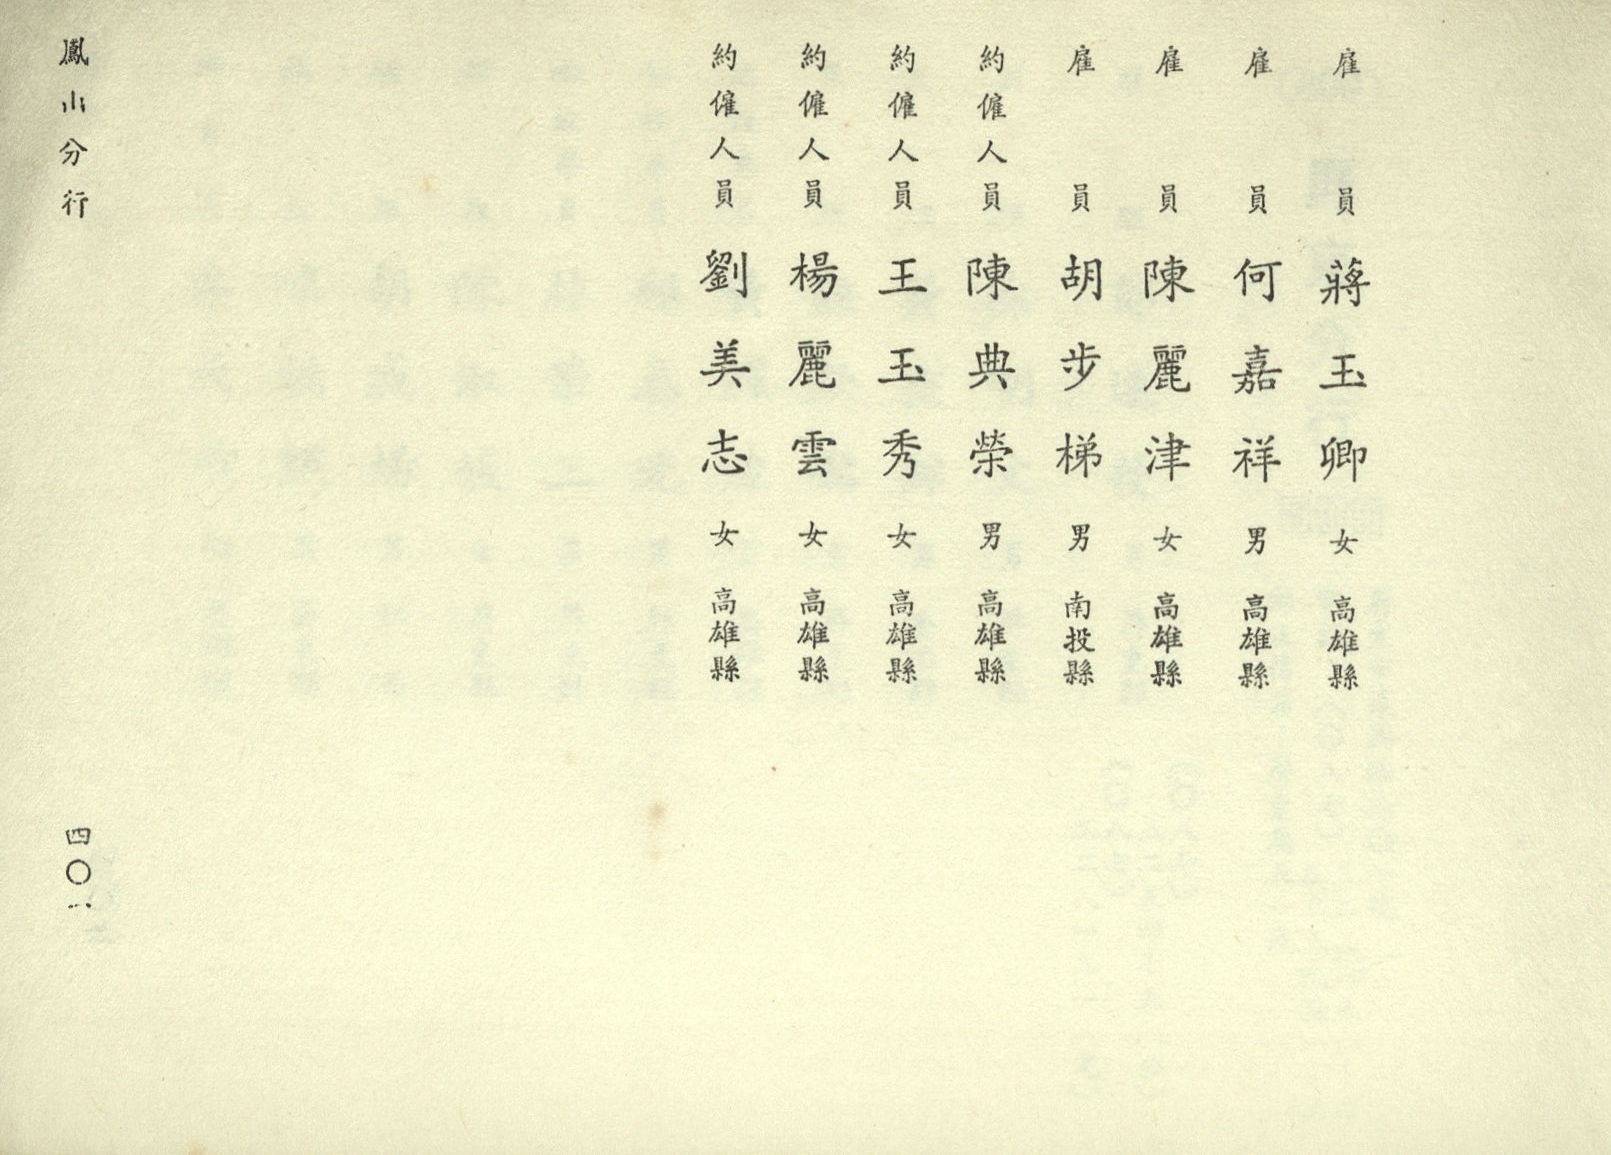 雇員蔣玉卿女高雄縣
雇員何嘉祥男高雄縣
雇員陳麗津女高雄縣
雇員胡步梯男南投縣
約僱人員陳典榮男高雄縣
約僱人員王玉秀女高雄縣
約僱人員楊麗雲女高雄縣
約僱人員劉美志女高雄縣
鳳山分行
四〇